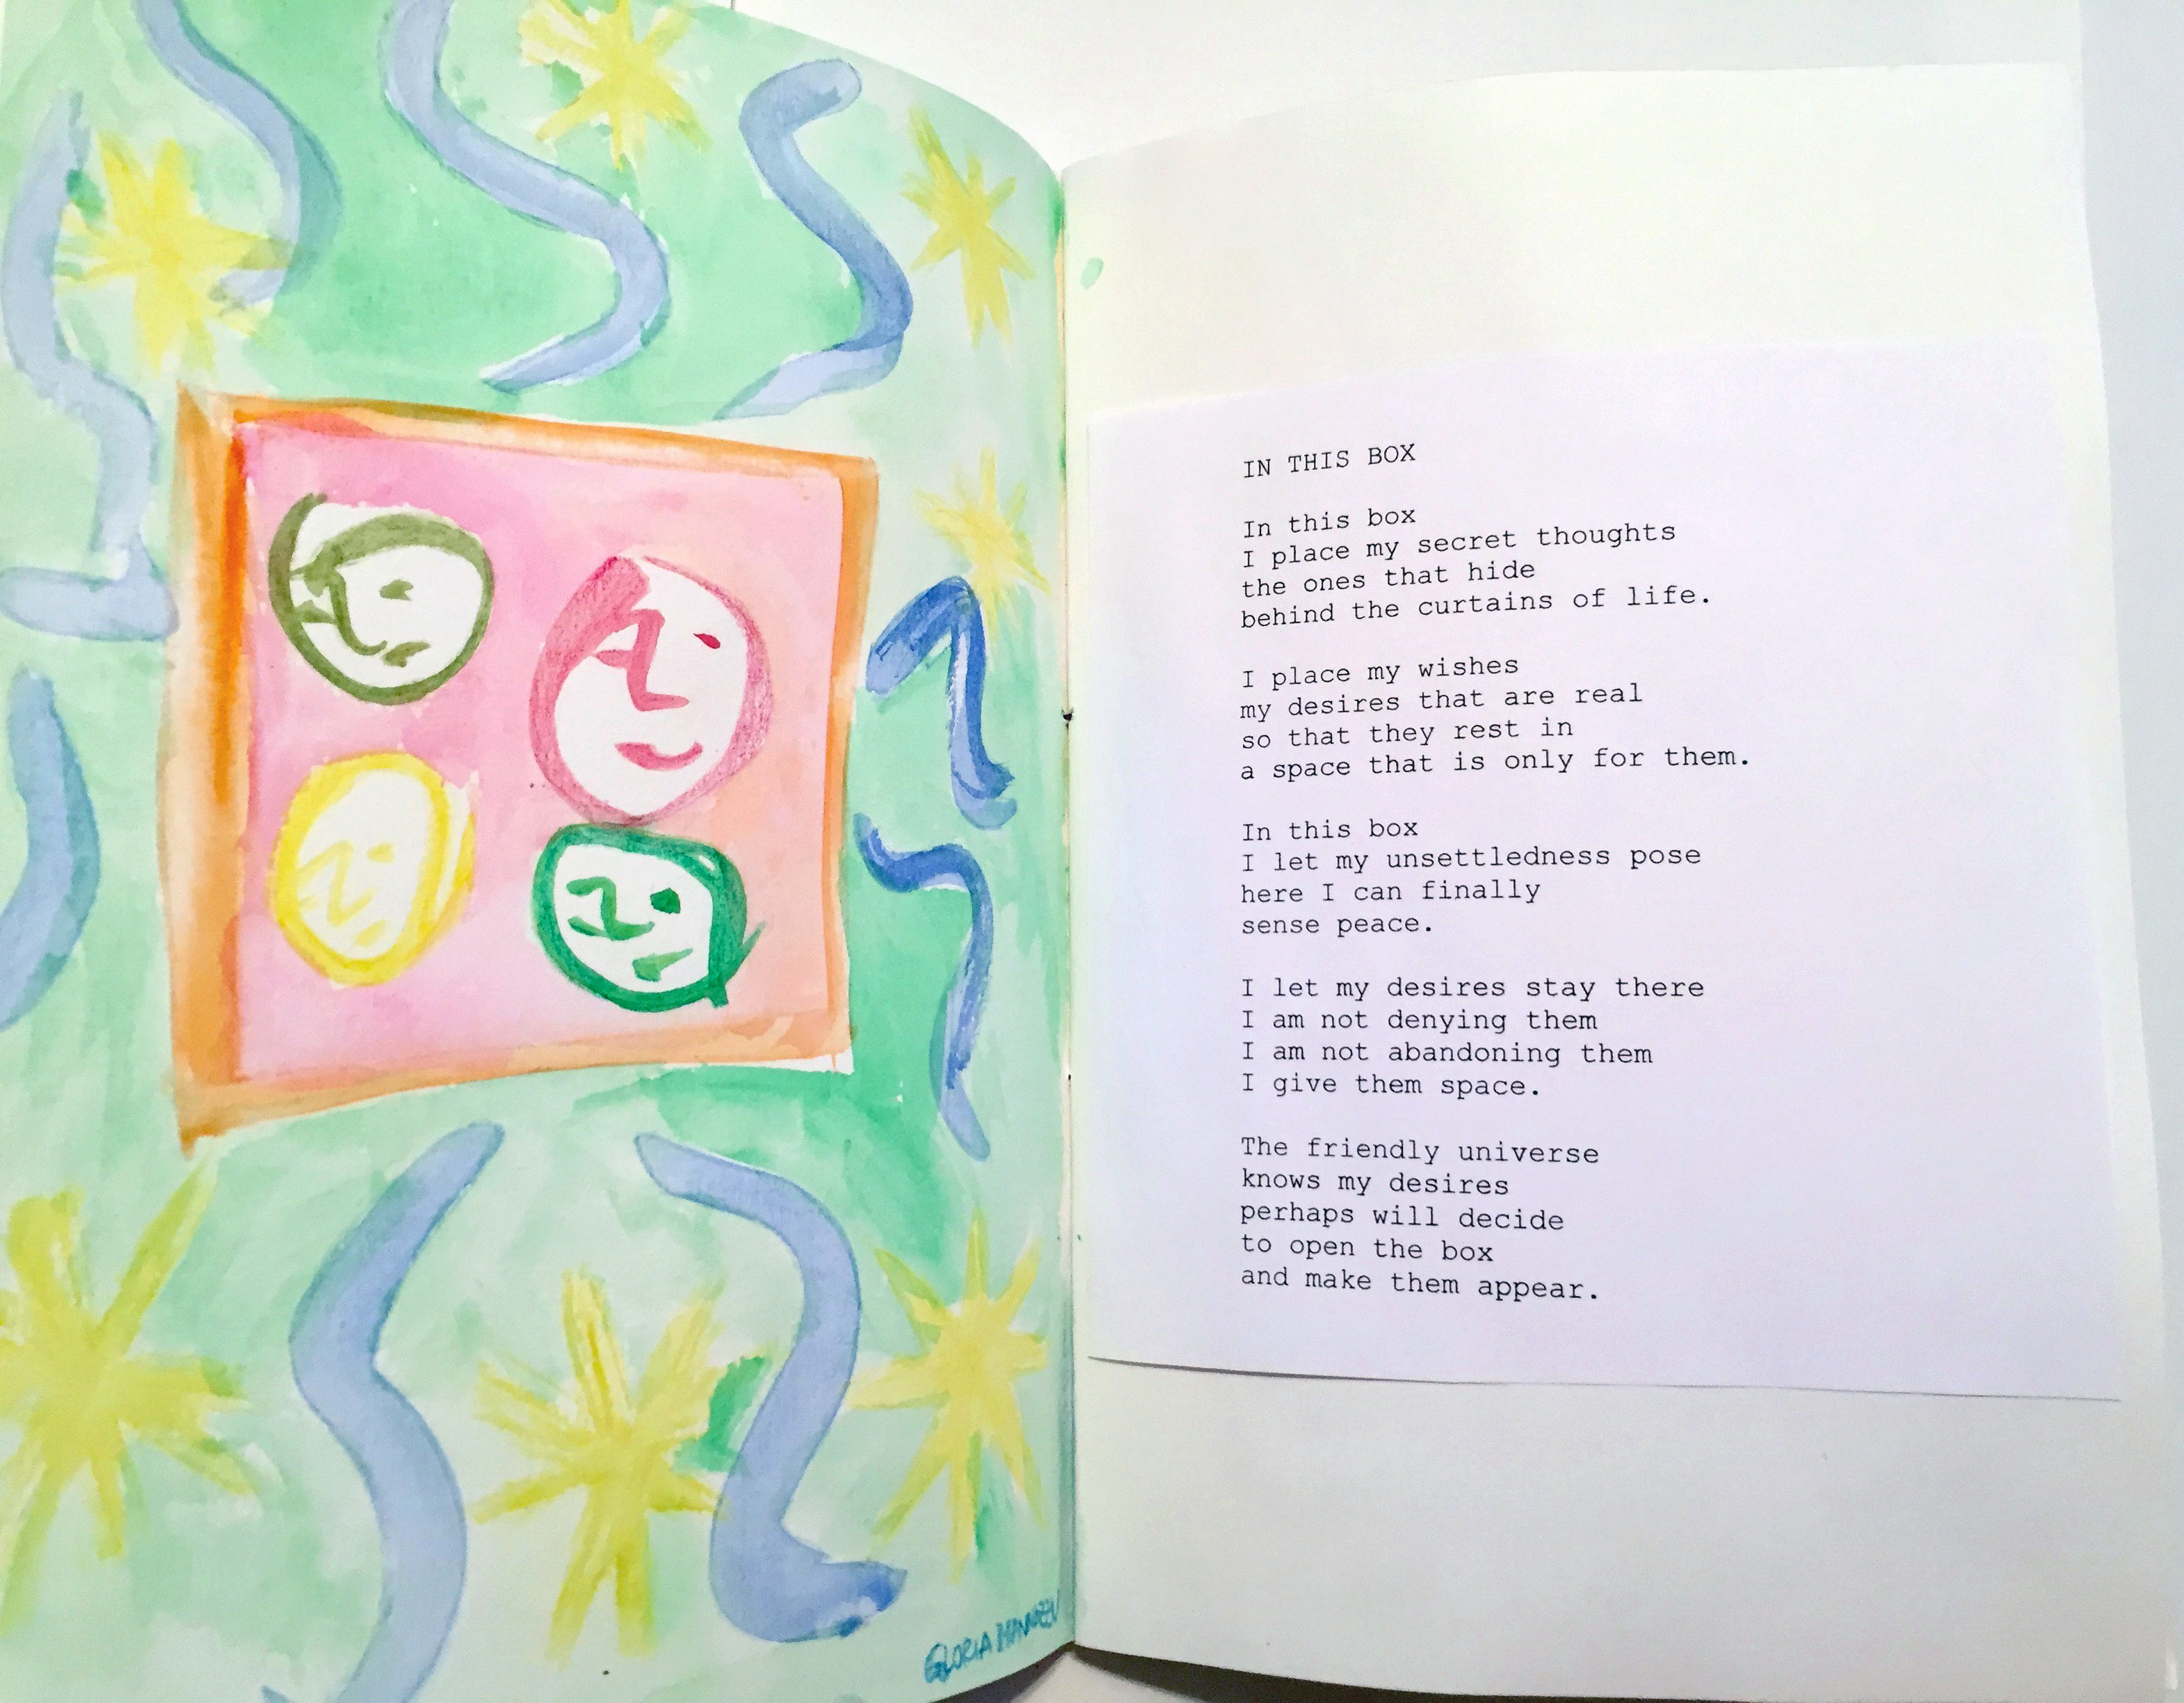 IN THIS BOX
In this box
I place my secret thoughts
the ones that hide
behind the curtains of life.
I place my wishes
my desires that are real
so that they rest in
a space that is only for them.
In this box
I let my unsettledness pose
here I can finally
sense peace.
I let my desires stay there
I am not denying them
I am not abandoning them
I give them space.
The friendly universe
knows my desires
perhaps will decide
to open the box
and make them appear.
GLORIA